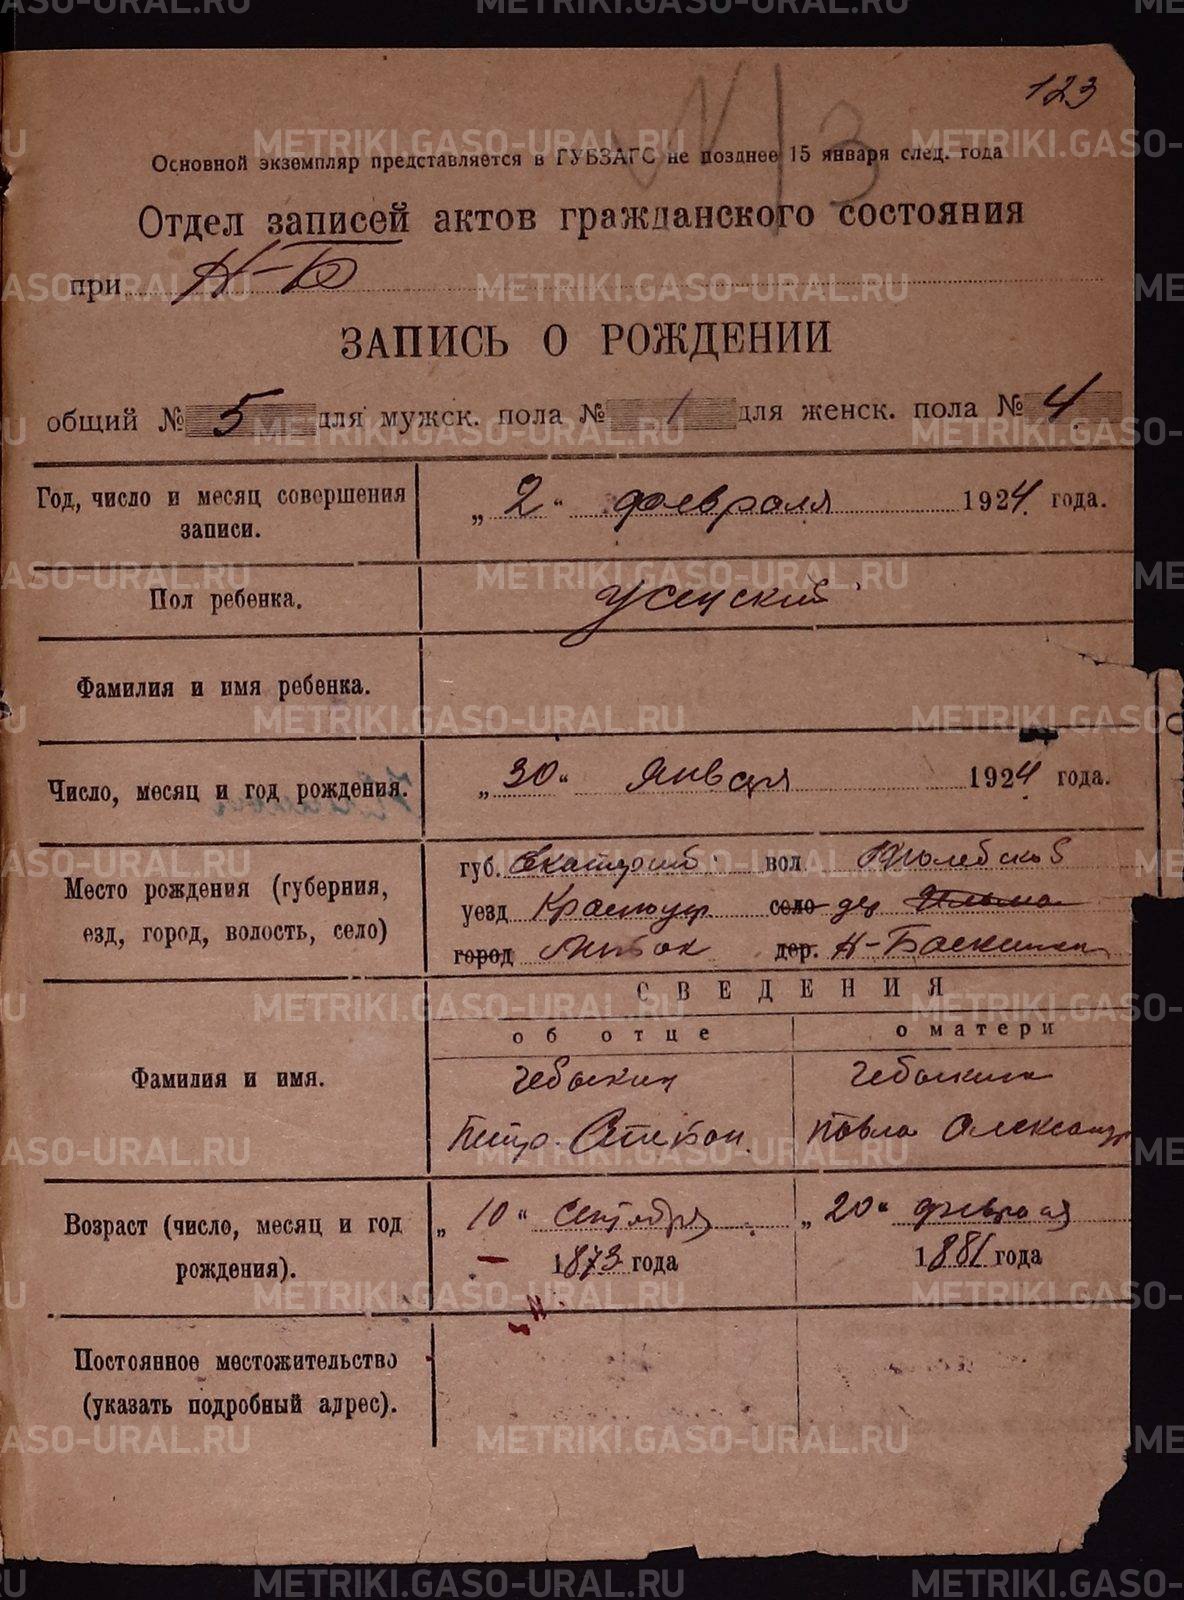 123
№ 13
Основной экземпляр представляется в ГУБЗАГС не позднее 15 января след. года
Отдел записей актов гражданского состояния
при Н-Б
ЗАПИСЬ О РОЖДЕНИИ
общий № 5 для мужск. пола № 1 для женск. пола № 4
Год, число и месяц совершения записи. „2“ февраля 1924 года.
Пол ребенка. Женский
Фамилия и имя ребенка.
Число, месяц и год рождения. „30“ января 1924 года.
Место рождения (губерния, губ. Екатеринб вол
уезд Красноуф село дер
езд, город, волость, село)
город дер. Н-Баскина
СВЕДЕНИЯ
об отце о матери
Фамилия и имя. Чебыкин Чебыкина
Петр Степан. Павла Александр
Возраст (число, месяц и год „10“ сентября „20“ февраля
рождения). 1873 года 1881 года
Постоянное местожительство
(указать подробный адрес).
METRIKI.GASO-URAL.RU